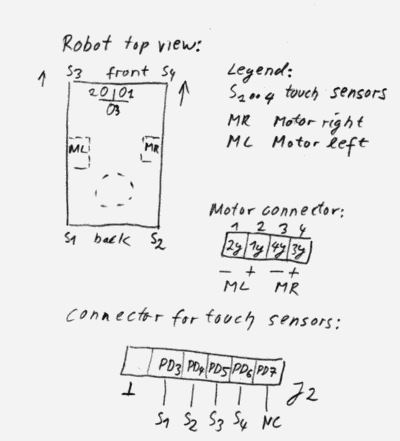 Robot top view:
S3 front S4
20|01
03
ML MR
S1 back S2
Legend:
S1..4 touch sensors
MR Motor right
ML Motor left
Motor connector:
1 2 3 4
2y 1y 4y 3y
- + - +
ML MR
Connector for touch sensors:
PD3 PD4 PD5 PD6 PD7
⊥ J2
S1 S2 S3 S4 NC